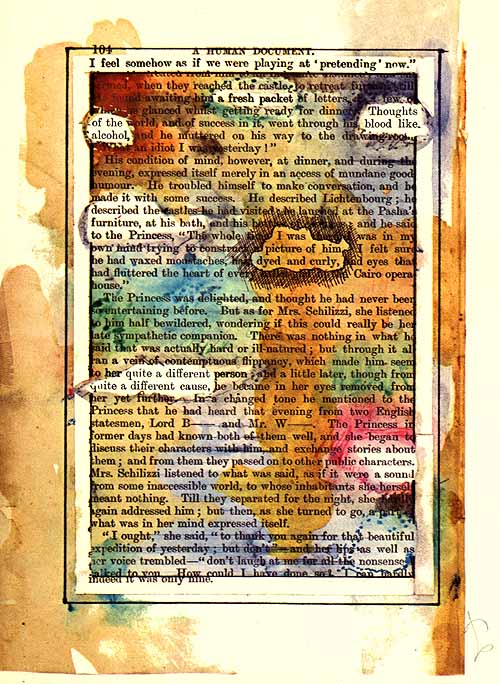 104
A HUMAN DOCUMENT.
I feel somehow as if we were playing at ‘pretending’ now.”
when they reached the castle, to retreat
found awaiting him a fresh packet of letters,
he glanced whilst getting ready for dinner. Thoughts
of the world, and of success in it, went through his blood like
alcohol, and he muttered on his way to the drawing-room,
an idiot I was yesterday!”
His condition of mind, however, at dinner, and during the
evening, expressed itself merely in an access of mundane good
humour. He troubled himself to make conversation, and he
made it with some success. He described Lichtenbourg; he
described the castles he had visited; he laughed at the Pasha's
furniture, at his bath, and his and he said
to the Princess. “The whole I was was in my
own mind trying to construct picture of him. I felt sure
he had waxed moustaches, dyed and curly, and eyes that
had fluttered the heart of every Cairo opera
house.”
The Princess was delighted, and thought he had never been
so entertaining before. But as for Mrs. Schilizzi, she listened
to him half bewildered, wondering if this could really be her
late sympathetic companion. There was nothing in what he
said that was actually hard or ill-natured; but through it all
ran a vein of contemptuous flippancy, which made him seem
to her quite a different person; and a little later, though from
quite a different cause, he became in her eyes removed from
her yet further. In a changed tone he mentioned to the
Princess that he had heard that evening from two English
statesmen, Lord B—— and Mr. W——. The Princess in
former days had known both of them well, and she began to
discuss their characters with him, and exchange stories about
them; and from them they passed on to other public characters.
Mrs. Schilizzi listened to what was said, as if it were a sound
from some inaccessible world, to whose inhabitants she herself
meant nothing. Till they separated for the night, she hardly
again addressed him; but then, as she turned to go, a part of
what was in her mind expressed itself.
“I ought,” she said, “to thank you again for that beautiful
expedition of yesterday; but don't”—and her lips as well as
her voice trembled—“don't laugh at me for all the nonsense I
talked to you. How could I have done so? I can hardly
indeed it was only mine.